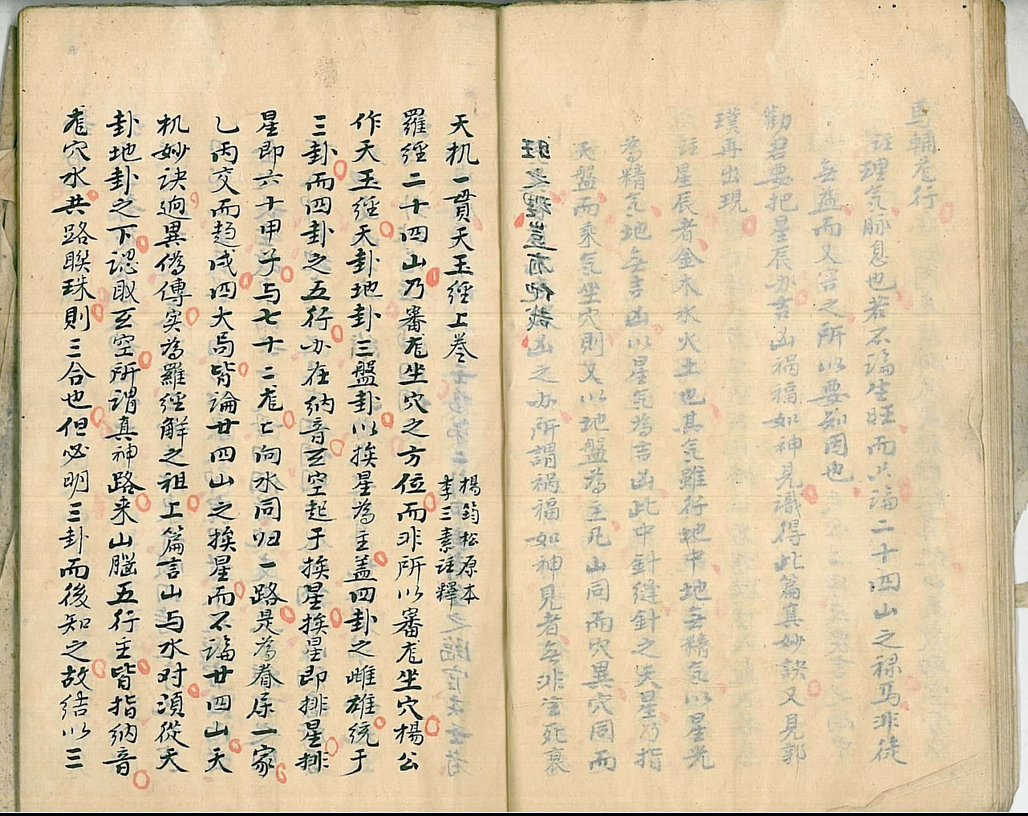 㢲輔龙行
註理气脉息也若不論生旺而只論二十四山之禄马非徒
無益而又害之所以要知因也
勸君要把星辰办吉凶祸福如神見識得此篇真妙訣又見郭
璞再出現
註星辰者金木水火土也其气雖行地中地無精气以星光
為精气地無吉凶以星气為吉凶此中針縫針之天星乃指
天盤而乘气坐穴則又以地盤為主凡山同而穴異穴同而
凶之办所謂祸福如神見者無非生死衰
旺之理豈有他哉
天机一貫天玉經上卷
楊筠松原本
李三素註釋
羅經二十四山乃審龙坐穴之方位而非所以審龙坐穴楊公
作天玉經天卦地卦三盤卦以挨星為主盖四卦之雌雄統于
三卦而四卦之五行办在納音玄空起于挨星挨星即排星排
星即六十甲子与七十二龙七向水同归一路是為眷属一家
乙丙交而趋戌四大局皆論廿四山之挨星而不論廿四山天
机妙訣迥異偽傳实為羅經解之祖上篇言山与水对須從天
卦地卦之下認取玄空所谓真神路来山腦五行主皆指納音
龙穴水共路聯珠則三合也但必明三卦而後知之故結以三